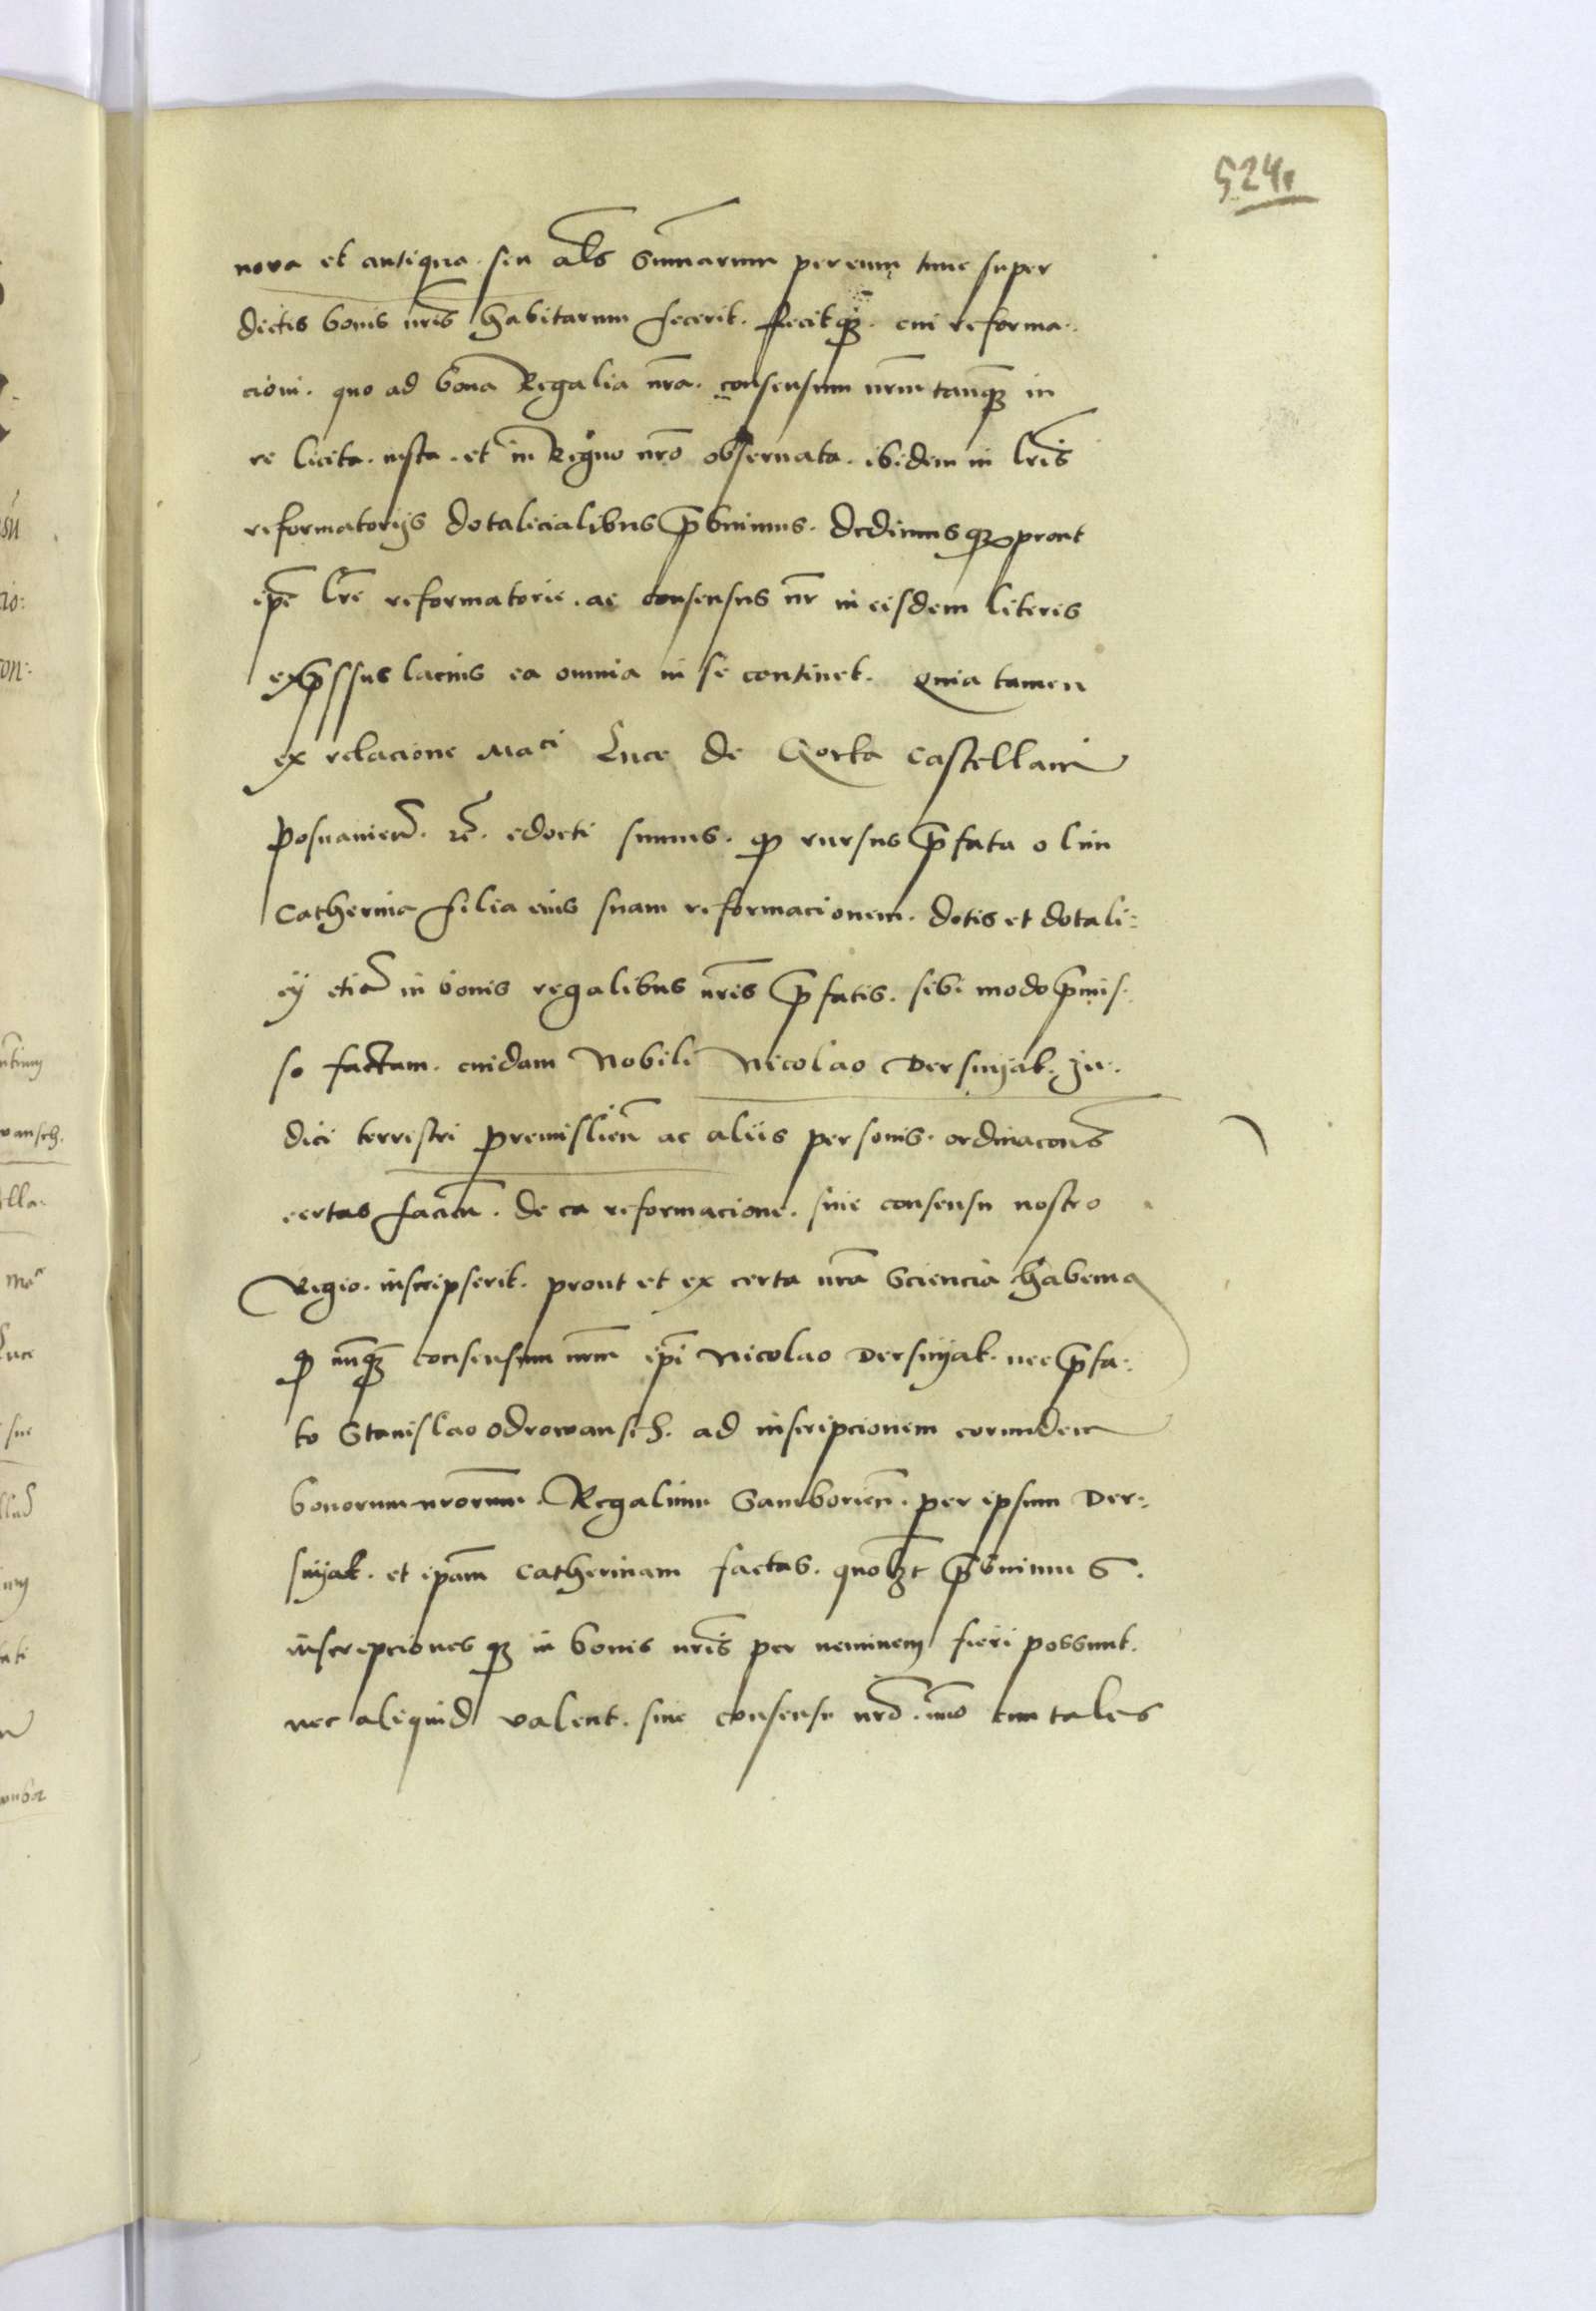 524r
nova et antiqua. seu als Summarum per eum tunc super
dictis bonis nris habitarum fecerit. fecitqz. cui reforma:
cioni. quo ad bona Regalia nra. consensum nrm tanqz in
re licita. iusta. et in Regno nro observata. ibidem in lris
reformatorijs dotalicialibus prebuimus. dedimusqz prout
ipe lre reformatorie. ac consensus nr in eisdem literis
expressus lacius ea omnia in se continet. Quia tamen
ex relacione Maci Luce de Gorka Castellani
posnanien. rc. edocti sumus. qp rursus prefata olim
Catherina filia eius suam reformacionem. dotis et dotali:
cij etia in bonis regalibus nris prefatis. sibi modo premis:
so factam. cuidam Nobili Nicolao Dersnijak. Ju:
dici terrestri premislien ac aliis personis. ordinacons
certas faciem. de ea reformacione. sine consensu nostro
Regio. inscripserit. prout et ex certa nra Sciencia habemq
qp nunqz consensum nrm ipi Nicolao Dersnijak. nec prefa:
to Stanislao Odrowansch. ad inscripcionem eorundem
bonorum nrorum. Regalium Samborien. per ipsum Der:
snijak. et ipam Catherinam factas. quolzt prebuimus.
inscripciones qz in bonis nris per neminem fieri possunt.
nec aliquid valent. sine consensu nro. imo tun tales